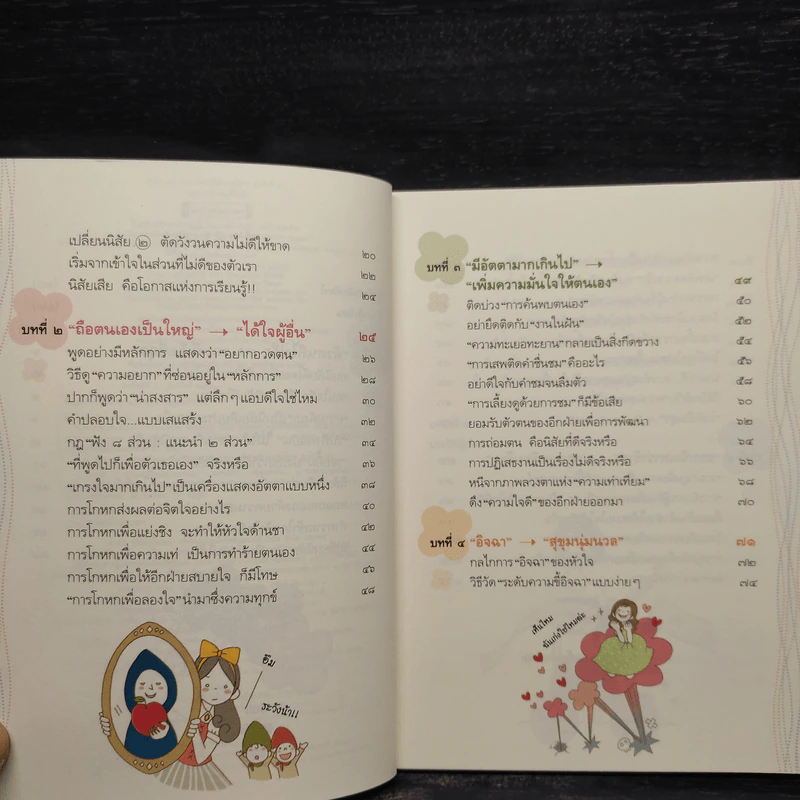 เปลี่ยนนิสัย ② ตัดวังวนความไม่ดีให้ขาด ๒๐
เริ่มจากเข้าใจในส่วนที่ไม่ดีของตัวเรา ๒๒
นิสัยเสีย คือโอกาสแห่งการเรียนรู้!! ๒๔
บทที่ ๒ "ถือตนเองเป็นใหญ่" → "ได้ใจผู้อื่น" ๒๕
พูดอย่างมีหลักการ แสดงว่า "อยากอวดตน" ๒๖
วิธีดู "ความอยาก" ที่ซ่อนอยู่ใน "หลักการ" ๒๘
ปากก็พูดว่า "น่าสงสาร" แต่ลึกๆ แอบดีใจใช่ไหม ๓๐
คำปลอบใจ...แบบเสแสร้ง ๓๒
กฎ "ฟัง ๘ ส่วน : แนะนำ ๒ ส่วน" ๓๔
"ที่พูดไปก็เพื่อตัวเธอเอง" จริงหรือ ๓๖
"เกรงใจมากเกินไป" เป็นเครื่องแสดงอัตตาแบบหนึ่ง ๓๘
การโกหกส่งผลต่อจิตใจอย่างไร ๔๐
การโกหกเพื่อแย่งชิง จะทำให้หัวใจด้านชา ๔๒
การโกหกเพื่อความเท่ เป็นการทำร้ายตนเอง ๔๔
การโกหกเพื่อให้อีกฝ่ายสบายใจ ก็มีโทษ ๔๖
"การโกหกเพื่อลองใจ" นำมาซึ่งความทุกข์ ๔๘
อืม
ระวังน้า!!
บทที่ ๓ "มีอัตตามากเกินไป" →
"เพิ่มความมั่นใจให้ตนเอง" ๔๙
ติดบ่วง "การค้นพบตนเอง" ๕๐
อย่ายึดติดกับ "งานในฝัน" ๕๒
"ความทะเยอทะยาน" กลายเป็นสิ่งกีดขวาง ๕๔
"การเสพติดคำชื่นชม" คืออะไร ๕๖
อย่าดีใจกับคำชมจนลืมตัว ๕๘
"การเลี้ยงดูด้วยการชม" ก็มีข้อเสีย ๖๐
ยอมรับตัวตนของอีกฝ่ายเพื่อการพัฒนา ๖๒
การถ่อมตน คือนิสัยที่ดีจริงหรือ ๖๔
การปฏิเสธงานเป็นเรื่องไม่ดีจริงหรือ ๖๖
หนีจากภาพลวงตาแห่ง "ความเท่าเทียม" ๖๘
ดึง "ความใจดี" ของอีกฝ่ายออกมา ๗๐
บทที่ ๔ "อิจฉา" → "สุขุมนุ่มนวล" ๗๑
กลไกการ "อิจฉา" ของหัวใจ ๗๒
วิธีวัด "ระดับความขี้อิจฉา" แบบง่ายๆ ๗๔
เห็นไหม
ฉันเก่งใช่ไหมล่ะ